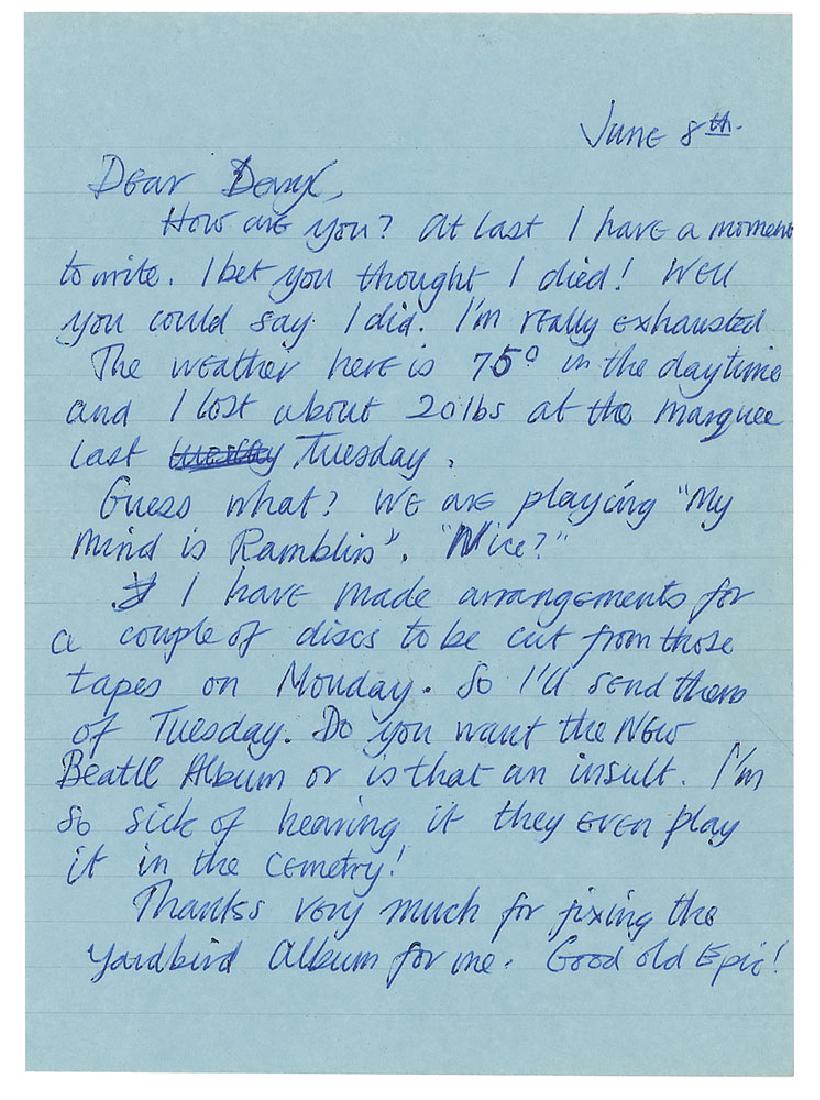 June 8th.
Dear Deryk,
How are you? At last I have a moment
to write. I bet you thought I died! Well
you could say I did. I'm really exhausted
The weather here is 75° in the daytime
and I lost about 20lbs at the Marquee
last Tuesday.
Guess what? We are playing "My
Mind is Ramblin". "Nice?"
I have made arrangements for
a couple of discs to be cut from those
tapes on Monday. So I'll send them
of Tuesday. Do you want the New
Beatle Album or is that an insult. I'm
so sick of hearing it they even play
it in the cemetry!
Thanks very much for fixing the
Yardbird Album for me. Good old Epic!